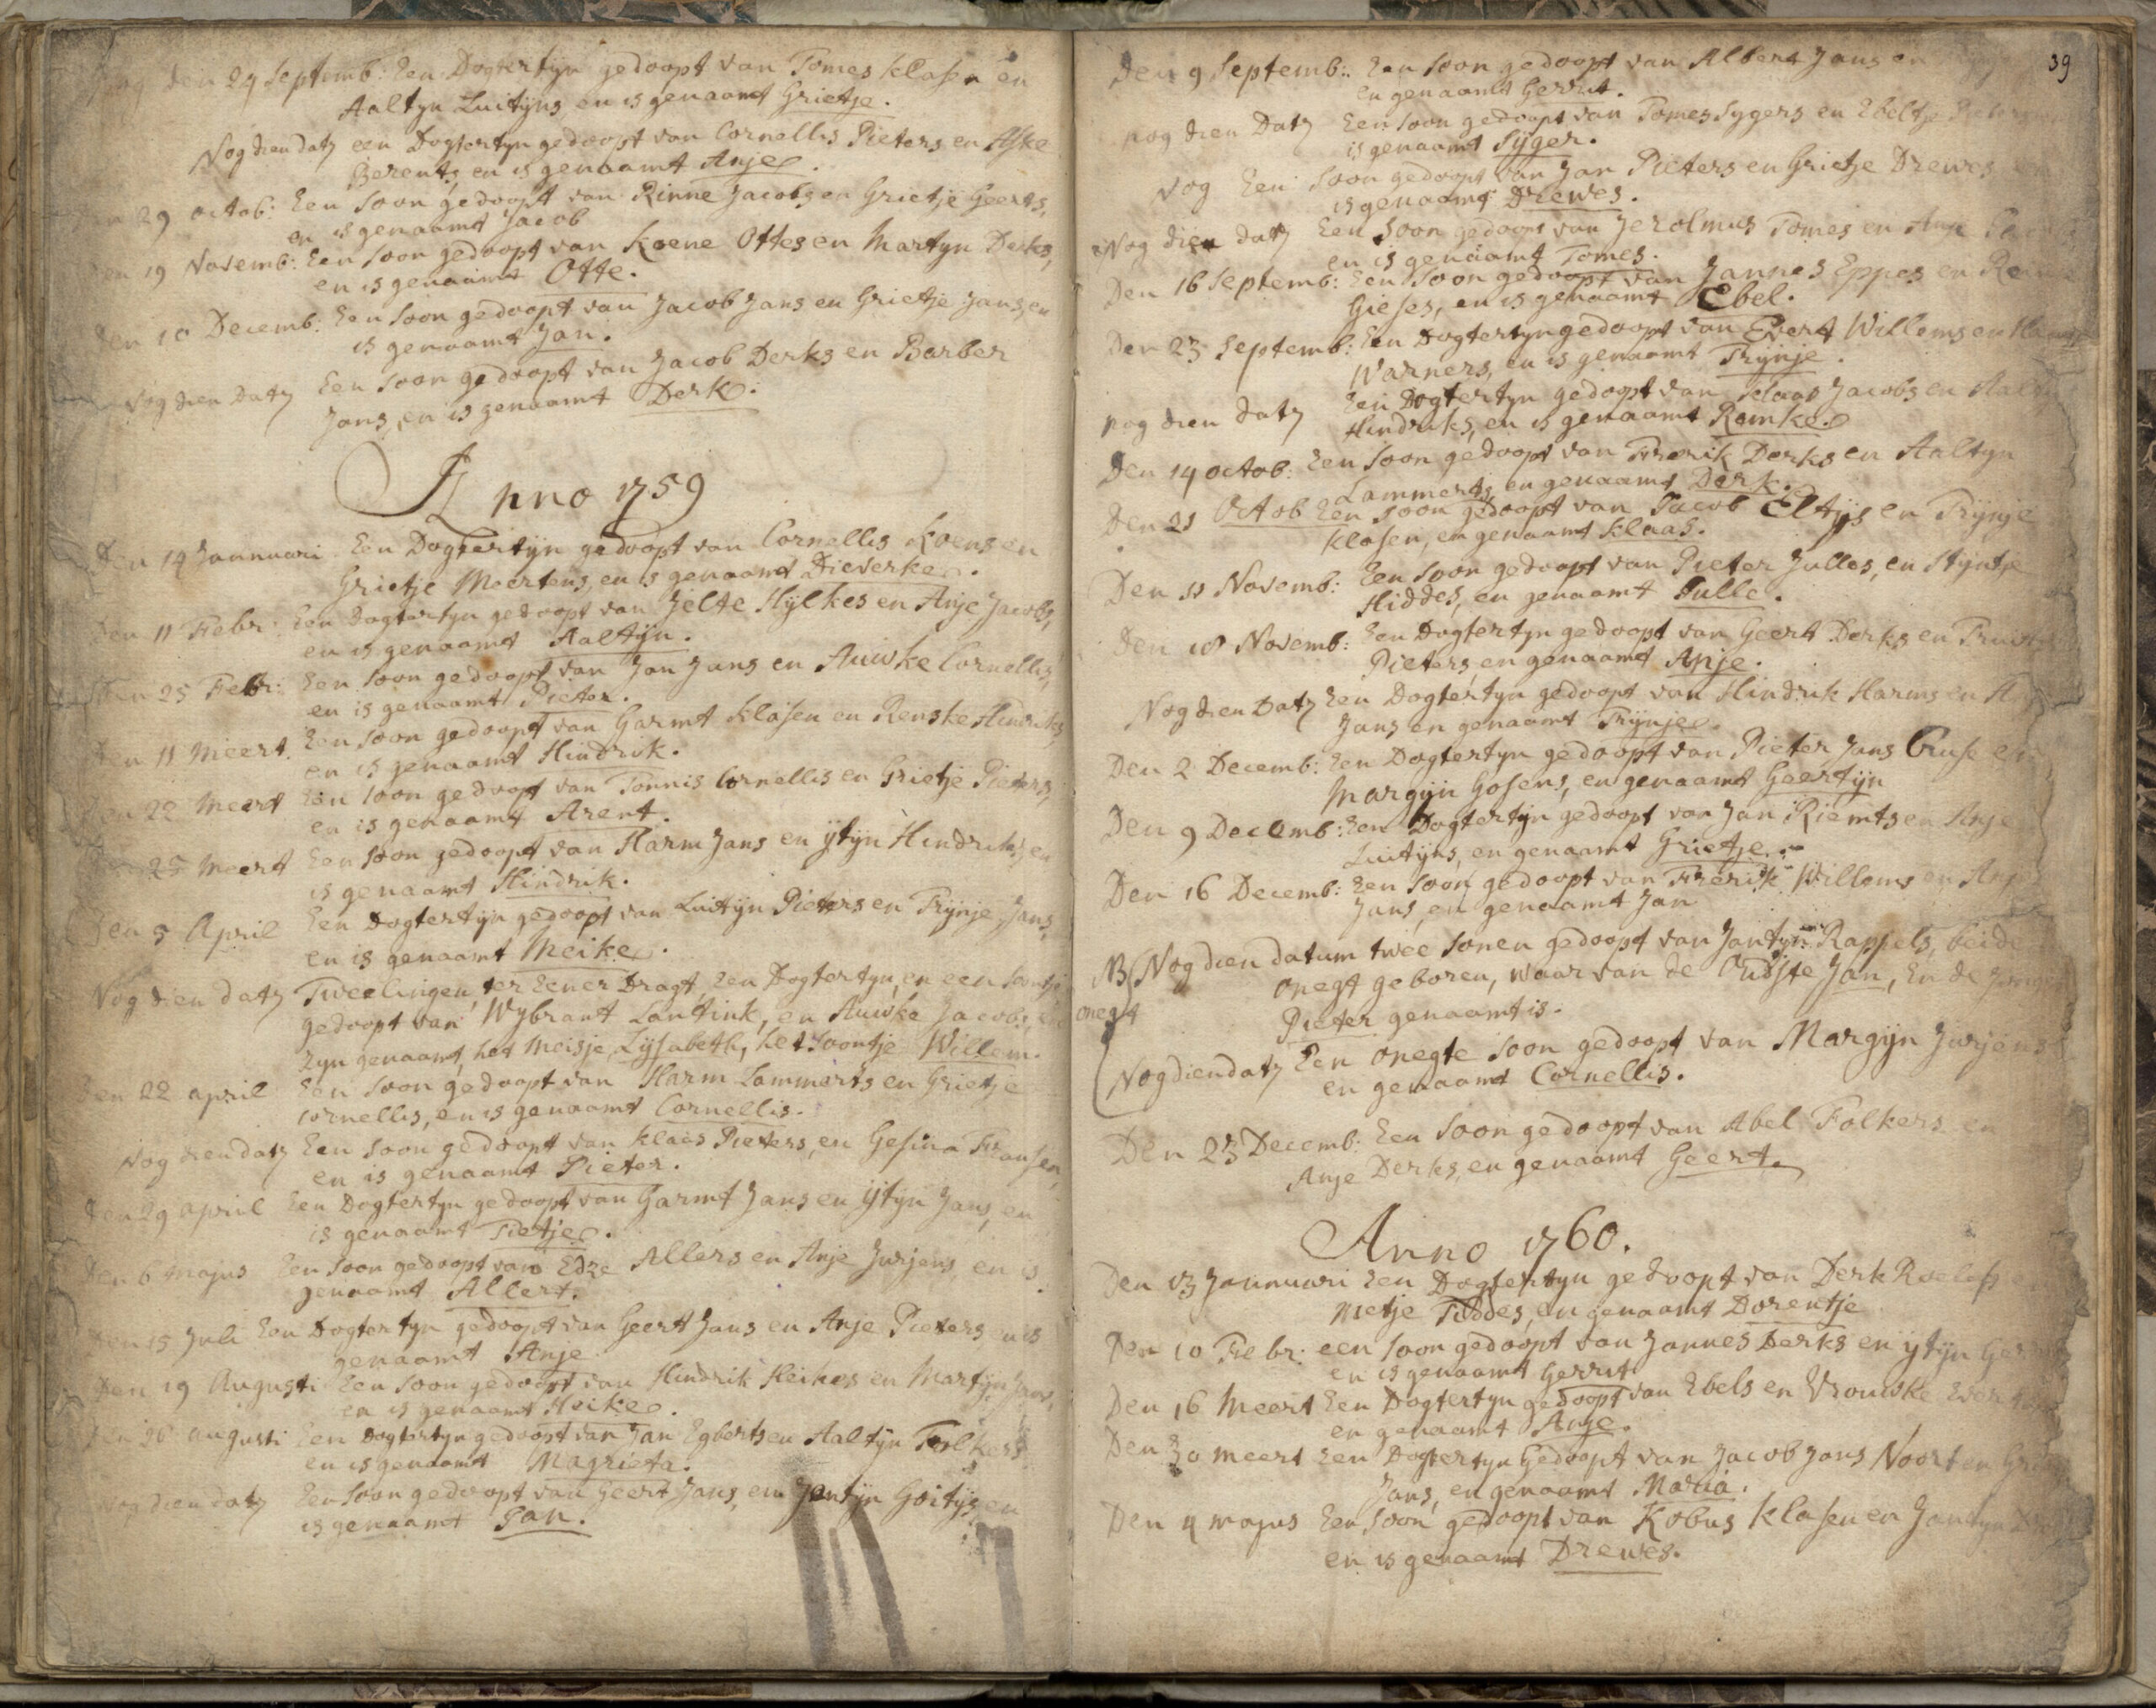 den 24 Septemb: Een Dogtertyn gedoopt van Tomes Klasen en
Aaltyn Luityns, en is genaamt Grietje.
Nog dien datz een Dogtertyn gedoopt van Cornellis Pieters en Aske
Berents, en is genaamt Anje.
29 octob: Een soon gedoopt van Rinne Jacobs en Grietje Geerts,
en is genaamt Jacob
19 Novemb: Een soon gedoopt van Koene Ottes en Martyn Derks,
en is genaamt Otte.
10 Decemb: Een soon gedoopt van Jacob Jans en Grietje Jans, en
is genaamt Jan.
Nog dien datz Een soon gedoopt van Jacob Derks en Barber
Jans, en is genaamt Derk.
Anno 1759
Den 14 Jannuari Een Dogtertijn gedoopt van Cornellis Koens en
Grietje Meertens, en is genaamt Dieverke.
Den 11 Febr: Een Dogtertyn gedoopt van Jelte Hylkes en Anje Jacobs,
en is genaamt Aaltijn.
Den 25 Febr: Een soon gedoopt van Jan Jans en Auwke Cornellis,
en is genaamt Pieter.
11 Meert. Een soon gedoopt van Garmt Klasen en Renske Hindriks,
en is genaamt Hindrik.
22 Meert Een soon gedoopt van Tonnis Cornellis en Grietje Pieters,
en is genaamt Arent.
25 Meert Een soon gedoopt van Harm Jans en ytyn Hindriks, en
is genaamt Hindrik.
Den 5 April Een Dogtertijn gedoopt van Luitijn Pieters en Trijnje Jans,
en is genaamt Meike.
Nog dien datz Tweelingen, ter Eener Dragt, Een Dogtertyn, en een soontje
gedoopt van Wybrant Lantink, en Auwke Jacobs,
zyn genaamt, het Meisje Lysabeth, het soontje Willem.
Den 22 april Een soon gedoopt van Harm Lammerts en Grietje
Cornellis, en is genaamt Cornellis.
Nog dien datz Een soon gedoopt van Klaes Pieters, en Gesina Fransen,
en is genaamt Pieter.
Den 29 april Een Dogtertyn gedoopt van Garmt Jans en ijtijn Jans, en
is genaamt Tietje.
Den 6 majus Een soon gedoopt van Edze Allers en Anje Jurjens, en is
genaamt Allert.
Den 15 Juli Een Dogtertyn gedoopt van Geert Jans en Anje Pieters en is
genaamt Anje
Den 19 Augusti Een soon gedoopt van Hindrik Heikes en Martijn Jans,
en is genaamt Heike.
26 augusti Een Dogtertyn gedoopt van Jan Egberts en Aaltijn Folkers
en is genaamt Magrieta.
Nog dien datz Een soon gedoopt van Geert Jans, en Jantijn Goitijs, en
is genaamt Jan.
39
Den 9 Septemb: Een soon gedoopt van Albert Jans en
en genaamt Gerrit.
nog dien Datz Een soon gedoopt van Tomes Sygers en Ebeltje
is genaamt Sijger.
Nog Een soon gedoopt van Jan Pieters en Grietje Drewes
is genaamt Drewes.
Nog dien datz Een soon gedoopt van Jerolmus Tomes en Anje
en is genaamt Tomes.
Den 16 Septemb: Een soon gedoopt van Jannes Eppes en
Gieses, en is genaamt Ebel.
Den 23 Septemb: Een Dogtertyn gedoopt van Evert Willems en
Warners, en is genaamt Trijnje.
nog dien datz Een Dogtertyn gedoopt van Klaas Jacobs en
Hindriks, en is genaamt Remke.
Den 14 octob: Een soon gedoopt van Frerik Derks en Aaltyn
Lammerts, en genaamt Derk.
Den 21 Octob Een soon gedoopt van Jacob Eltijs en Trijnje
Klasen, en genaamt Klaas.
Den 11 Novemb: Een soon gedoopt van Pieter Julles, en Stijntje
Hiddes, en genaamt Julle.
Den 18 Novemb: Een Dogtertyn gedoopt van Geert Derks en
Pieters, en genaamt Anje.
Nog dien Datz Een Dogtertyn gedoopt van Hindrik Harms en
Jans en genaamt Trijnje.
Den 2 Decemb: Een Dogtertyn gedoopt van Pieter Jans Cruse en
Margijn Gosens, en genaamt Geertijn
Den 9 Decemb: Een Dogtertijn gedoopt van Jan Riemts en Anje
Luitijns, en genaamt Grietje.
Den 16 Decemb: Een soon gedoopt van Frerik Willems en
Jans, en genaamt Jan
NB Nog dien datum twee sonen gedoopt van Jantyn Rappels, beide
onegt geboren, waar van de Oudste Jan, En de
onegt
Pieter genaamt is.
Nog dien datz Een onegte soon gedoopt van Margijn Jurjens
en genaamt Cornellis.
Den 23 Decemb: Een soon gedoopt van Abel Folkers en
Anje Derks, en genaamt Geert.
Anno 1760.
Den 13 Jannuari Een Dogtertyn gedoopt van Derk Roelefs
Metje Fiddes, en genaamt Dorentje
Den 10 Febr: een soon gedoopt van Jannes Derks en ytijn
en is genaamt Gerrit
Den 16 Meert Een Dogtertyn gedoopt van Ebels en Vrouwke
en genaamt Anje.
Den 30 meert Een Dogtertyn Gedoopt van Jacob Jans Noort en
Jans, en genaamt Maria.
Den 4 majus Een soon gedoopt van Kobus Klasen en Jantyn
en is genaamt Drewes.